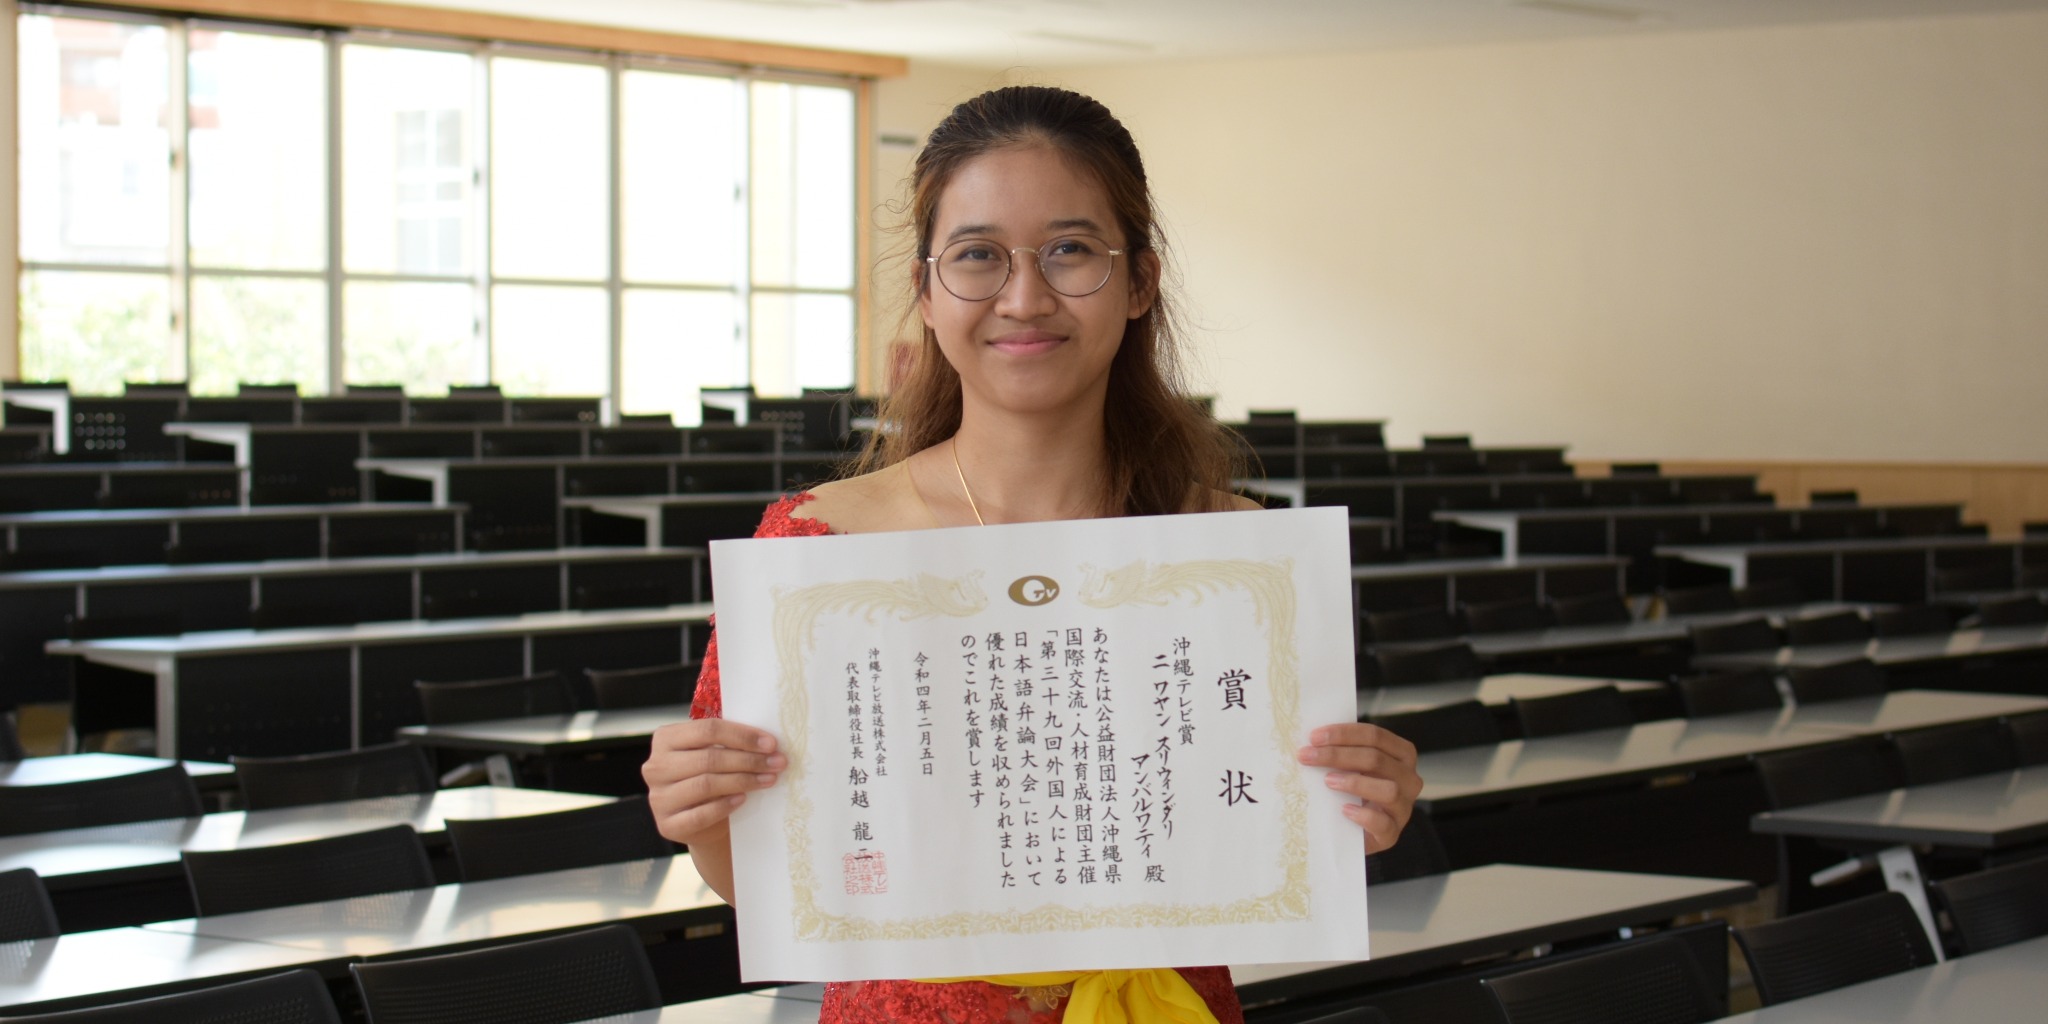 OTV
賞状
沖縄テレビ賞
ニ ワヤン スリウィンダリ
アンバルワティ 殿
あなたは公益財団法人沖縄県
国際交流・人材育成財団主催
「第三十九回外国人による
日本語弁論大会」において
優れた成績を収められました
のでこれを賞します
令和四年二月五日
沖縄テレビ放送株式会社
代表取締役社長 船越 龍二